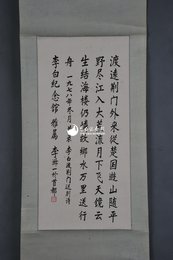 渡遠荆门外来從楚国遊山随平
野尽江入大荒流月下飞天镜云
生结海楼仍憐故鄉水万里送行
舟 一九七八年冬月 李白渡荆门送别诗
李白纪念舘 雅属 李 首都